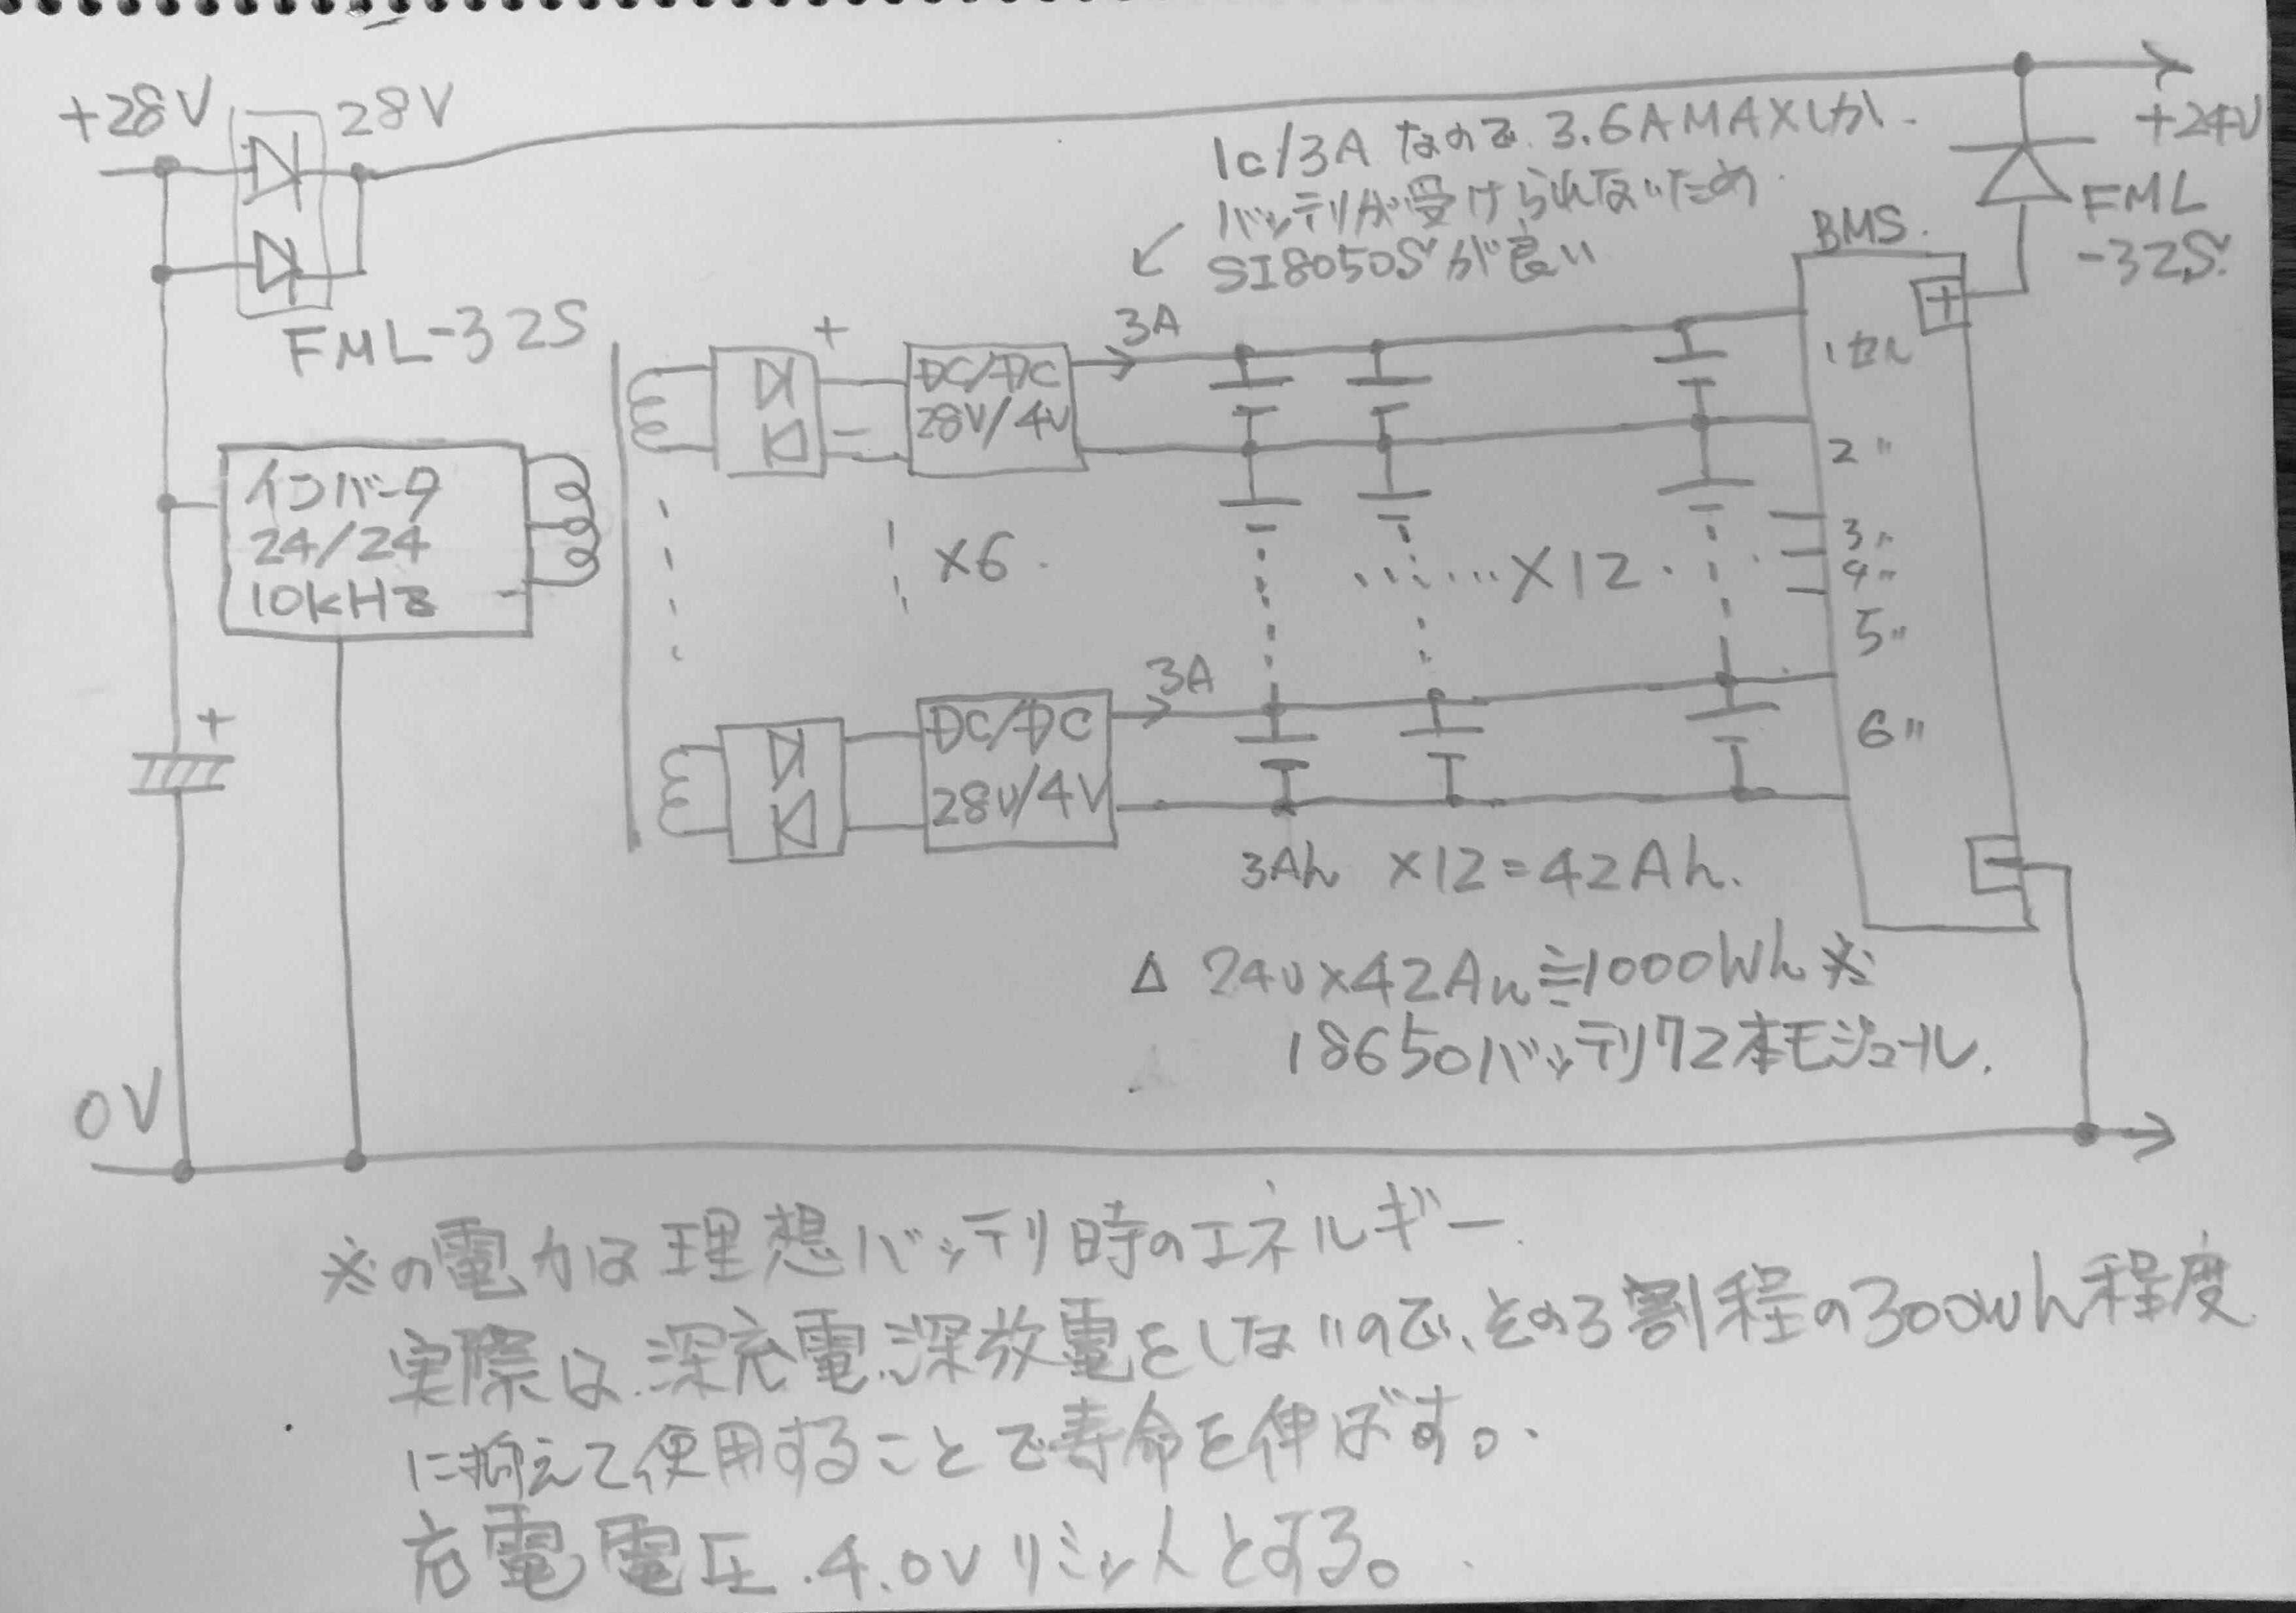 +28V
28V
FML-32S
+24V
1c/3A なので、3.6AMAXしか
バッテリが受けられないため
SI8050Sが良い
FML
-32S
BMS
+
3A
DC/DC
28V/4V
+
-
インバータ
24/24
10kHz
×6
×12
1セル
2〃
3〃
4〃
5〃
6〃
3A
DC/DC
28V/4V
+
-
3Ah ×12=42Ah.
Δ 24V×42Ah≒1000Wh ※
18650バッテリ72本モジュール.
0V
※の電力は理想バッテリ時のエネルギー
実際は、深充電、深放電をしないので、その3割程の300Wh程度
に抑えて使用することで寿命を伸ばす。
充電電圧.4.0Vリミットとする。